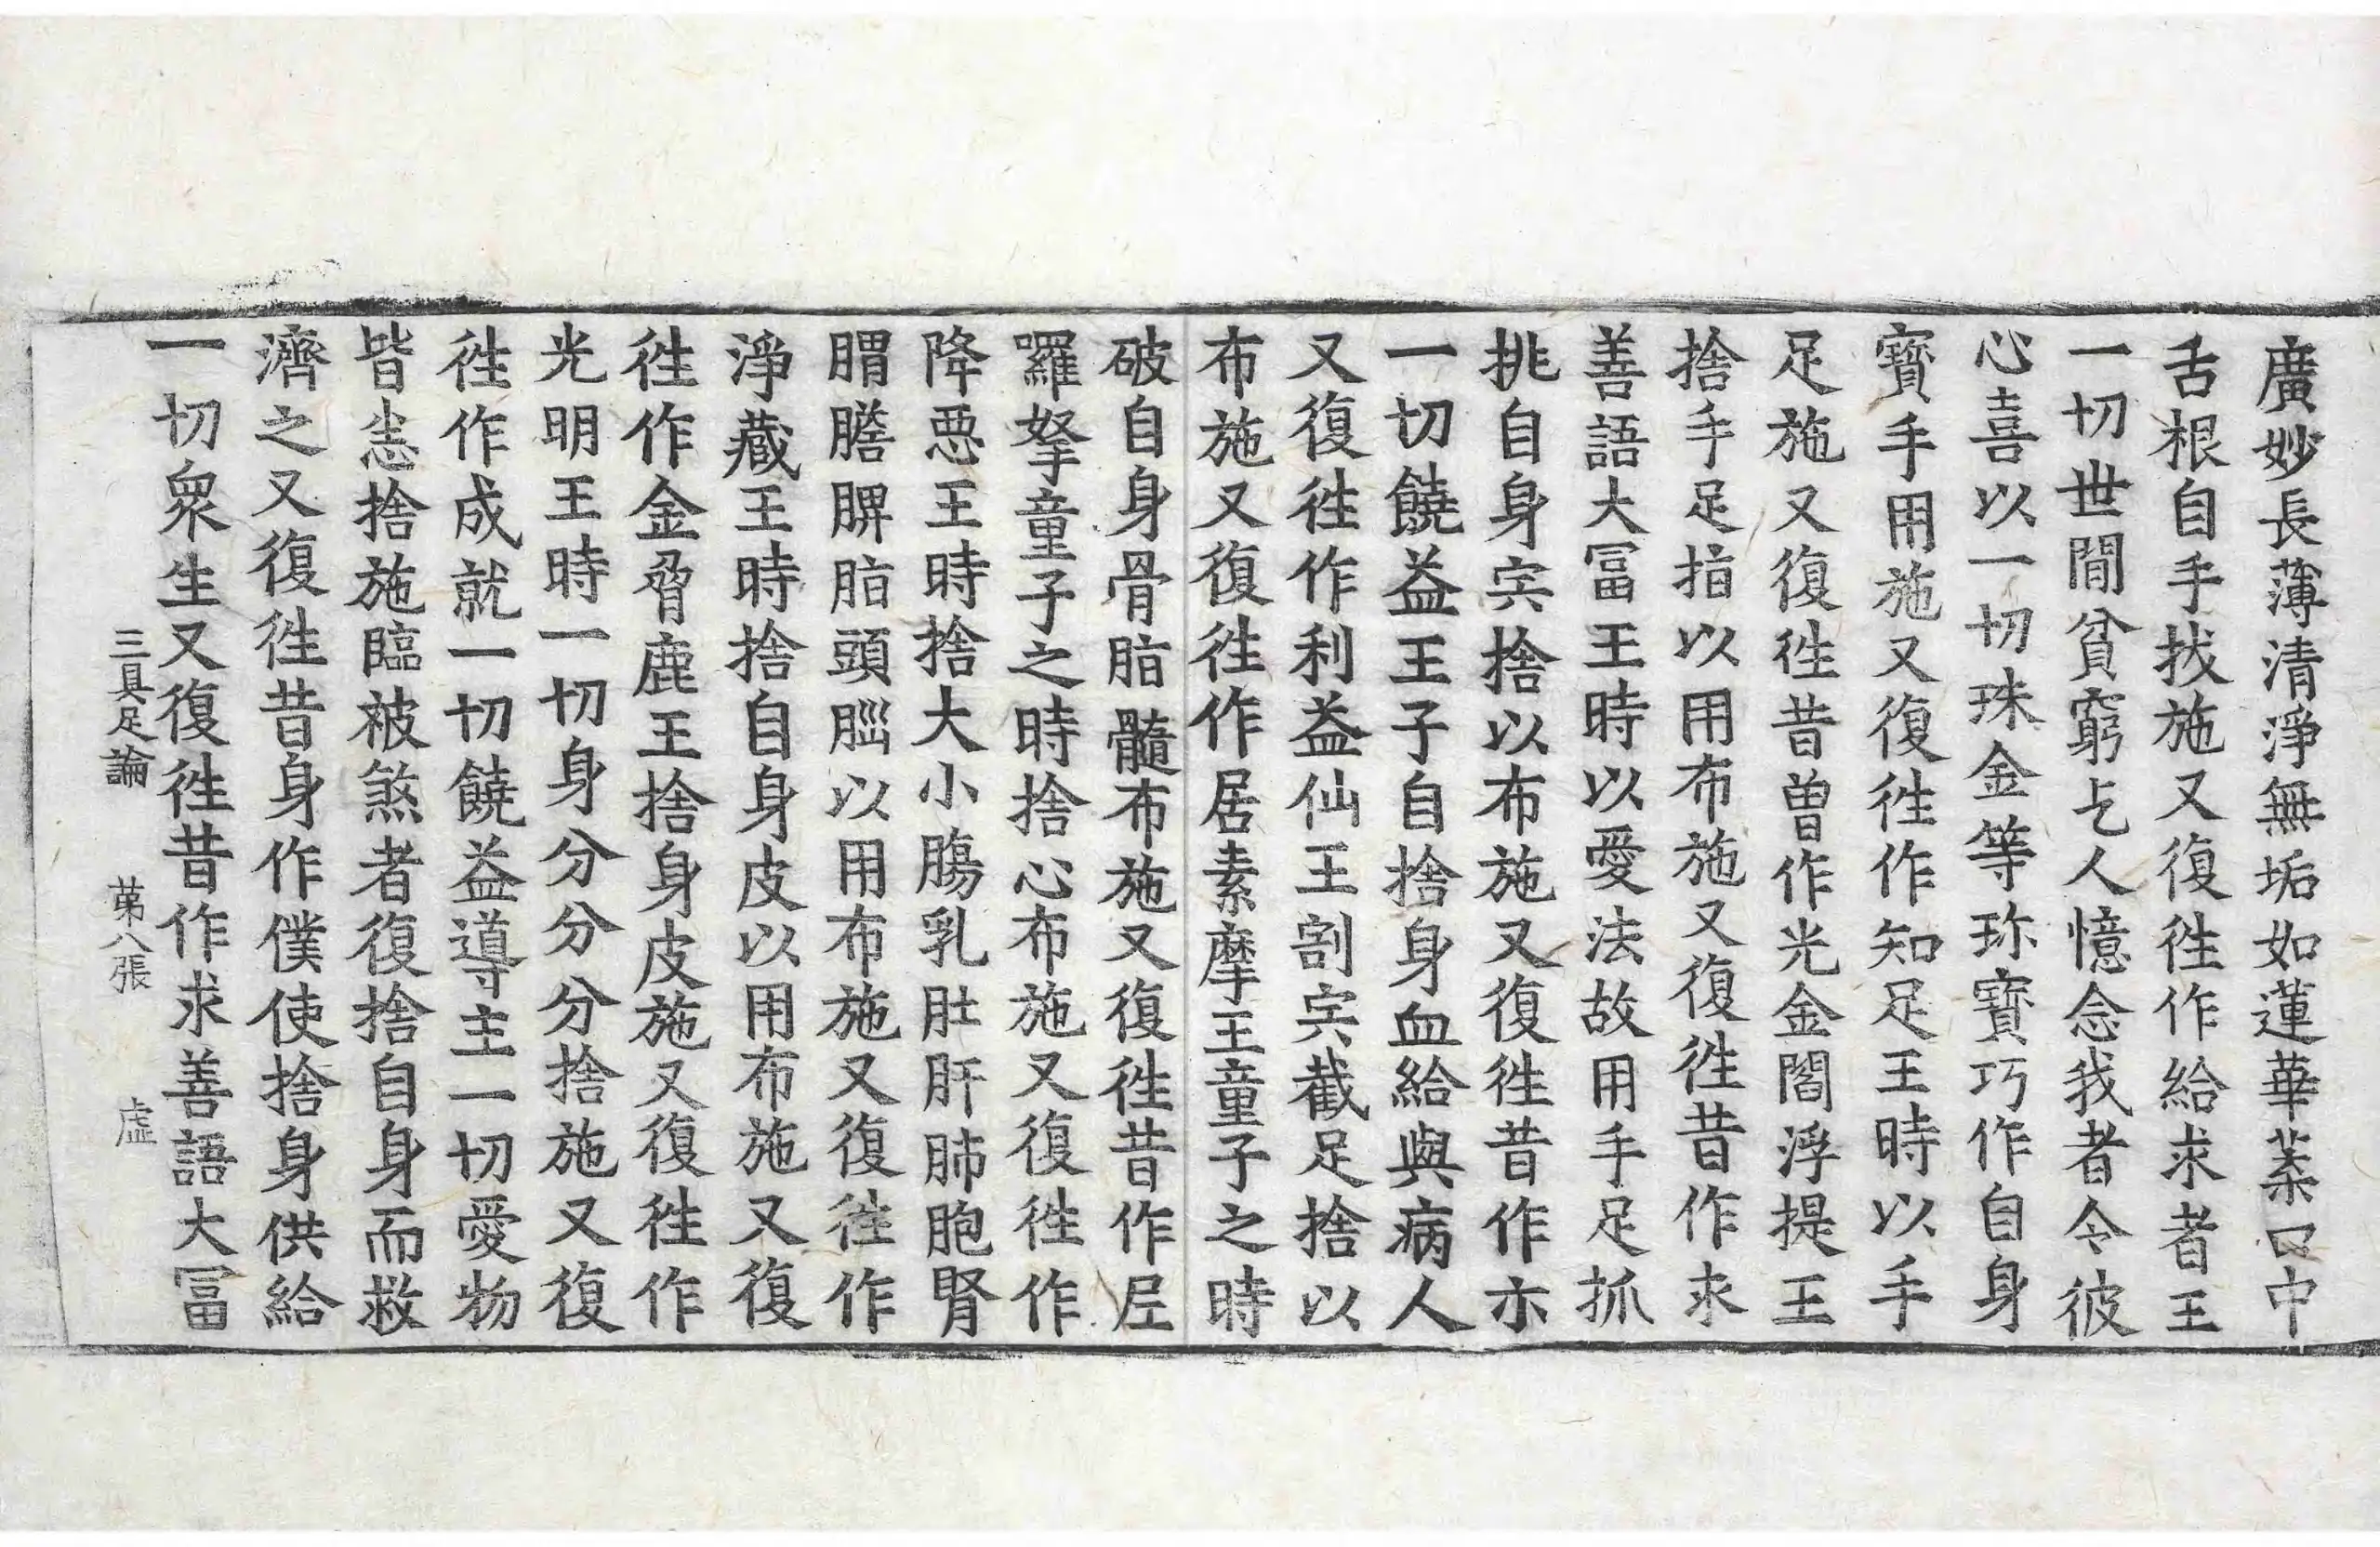 廣妙長薄清淨無垢如蓮華菜口中
舌根自手拔施又復徃作給求者王
一切世間貧窮乞人憶念我者令彼
心喜以一切珠金等珎寶巧作自身
寶手用施又復徃作知足王時以手
足施又復徃昔曽作光金閻浮提王
捨手足指以用布施又復徃昔作求
善語大冨王時以愛法故用手足抓
挑自身宍捨以布施又復徃昔作亦
一切饒益王子自捨身血給與病人
又復徃作利益仙王割宍截足捨以
布施又復徃作居素摩王童子之時
破自身骨脂髓布施又復徃昔作𡰱
羅拏童子之時捨心布施又復徃作
降惡王時捨大小膓乳肚肝肺胞腎
𦝩膽脾脂頭𦛁以用布施又復徃作
淨藏王時捨自身皮以用布施又復
徃作金脅鹿王捨身皮施又復徃作
光明王時一切身分分分捨施又復
徃作成就一切饒益導主一切愛物
皆悉捨施臨被煞者復捨自身而救
濟之又復徃昔身作僕使捨身供給
一切衆生又復徃昔作求善語大冨
三具足論 苐八張 虛